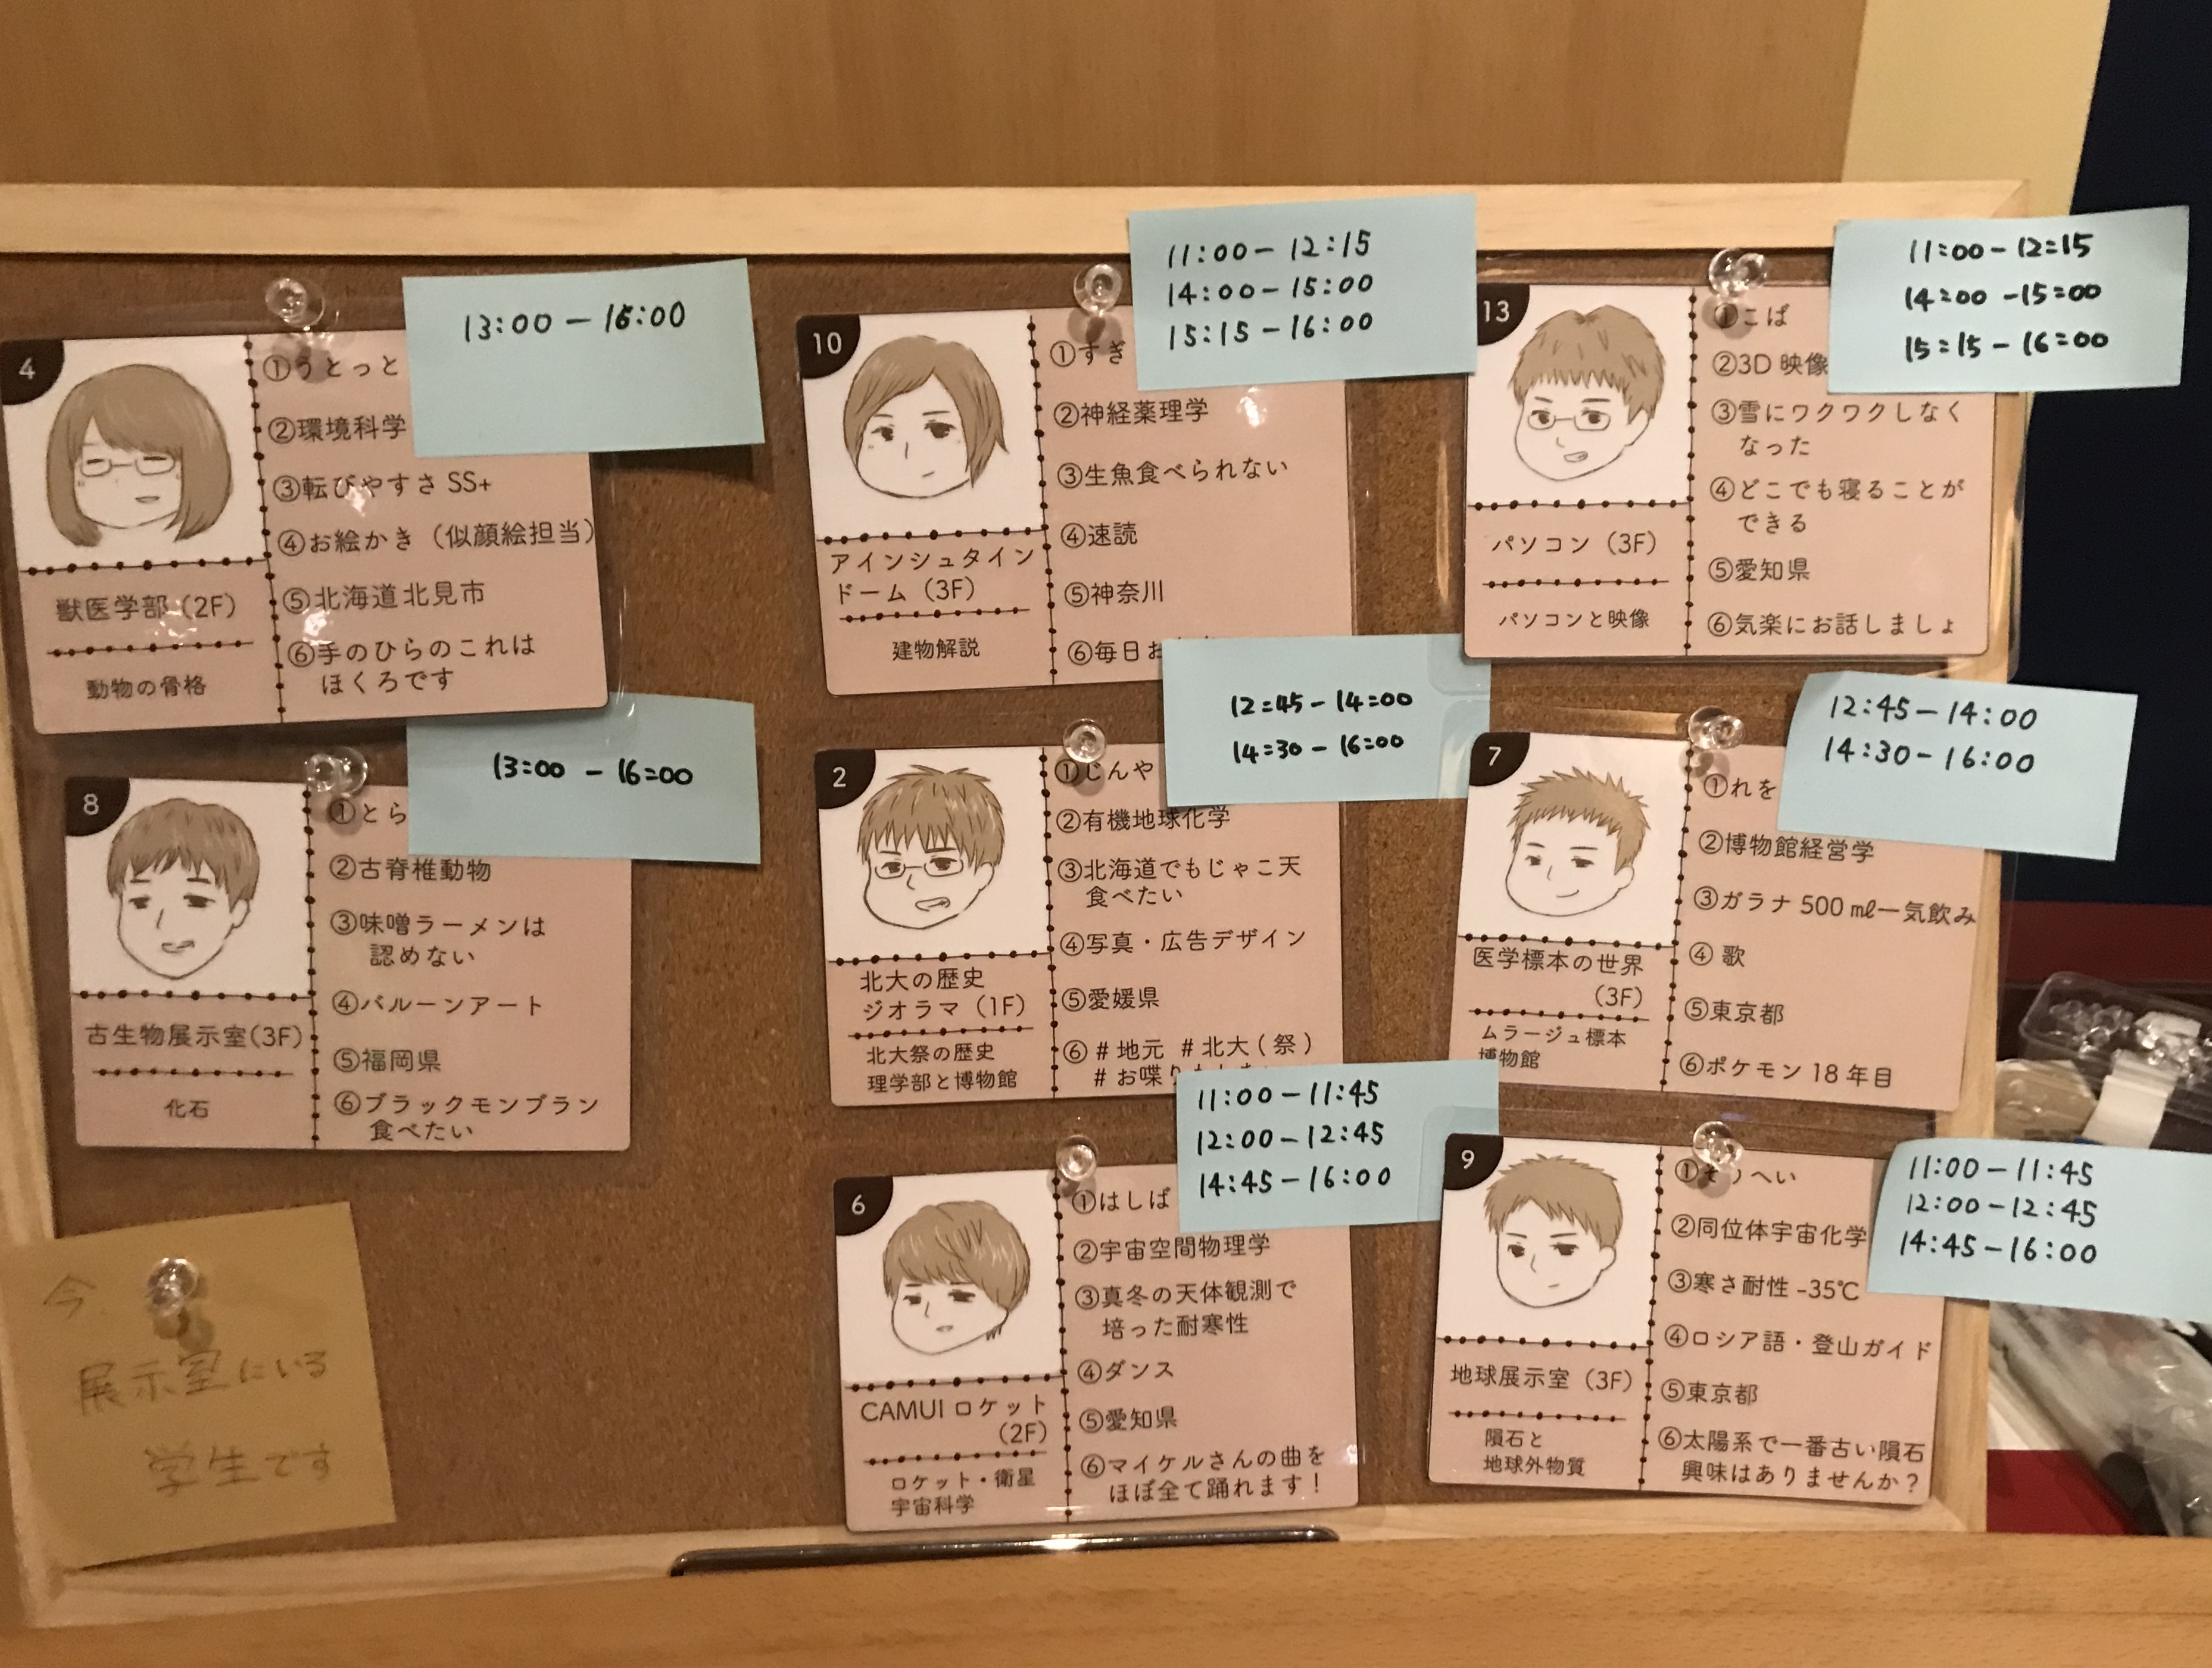 4
①うとっと
②環境科学
③転びやすさ SS+
④お絵かき（似顔絵担当）
⑤北海道北見市
⑥手のひらのこれは
ほくろです
獣医学部（2F）
動物の骨格
13:00 － 16:00
10
①すぎ
②神経薬理学
③生魚食べられない
④速読
⑤神奈川
⑥毎日お
アインシュタイン
ドーム（3F）
建物解説
11:00 － 12:15
14:00 － 15:00
15:15 － 16:00
13
①こば
②3D 映像
③雪にワクワクしなく
なった
④どこでも寝ることが
できる
⑤愛知県
⑥気楽にお話しましょ
パソコン（3F）
パソコンと映像
11:00 － 12:15
14:00 － 15:00
15:15 － 16:00
8
①とら
②古脊椎動物
③味噌ラーメンは
認めない
④バルーンアート
⑤福岡県
⑥ブラックモンブラン
食べたい
古生物展示室（3F）
化石
13:00 － 16:00
2
①じんや
②有機地球化学
③北海道でもじゃこ天
食べたい
④写真・広告デザイン
⑤愛媛県
⑥ #地元 #北大(祭)
#お喋り
北大の歴史
ジオラマ（1F）
北大祭の歴史
理学部と博物館
12:45 － 14:00
14:30 － 16:00
7
①れを
②博物館経営学
③ガラナ 500 ㎖一気飲み
④ 歌
⑤東京都
⑥ポケモン 18 年目
医学標本の世界
（3F）
ムラージュ標本
博物館
12:45 － 14:00
14:30 － 16:00
6
①はしば
②宇宙空間物理学
③真冬の天体観測で
培った耐寒性
④ダンス
⑤愛知県
⑥マイケルさんの曲を
ほぼ全て踊れます！
CAMUI ロケット
（2F）
ロケット・衛星
宇宙科学
11:00 － 11:45
12:00 － 12:45
14:45 － 16:00
9
①へい
②同位体宇宙化学
③寒さ耐性 -35℃
④ロシア語・登山ガイド
⑤東京都
⑥太陽系で一番古い隕石
興味はありませんか？
地球展示室（3F）
隕石と
地球外物質
11:00 － 11:45
12:00 － 12:45
14:45 － 16:00
今、
展示室にいる
学生です